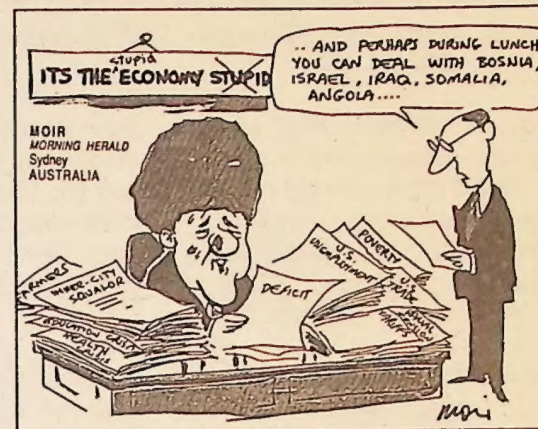 stupid
ITS THE ECONOMY STUPID
.. AND PERHAPS DURING LUNCH
YOU CAN DEAL WITH BOSNIA,
ISRAEL, IRAQ, SOMALIA,
ANGOLA....
MOIR
MORNING HERALD
Sydney
AUSTRALIA
FARMERS
INNER-CITY
SQUALOR
EDUCATION CRISIS
HEALTH
DEFICIT
U.S.
UNEMPLOYMENT
POVERTY
U.S.
TRADE
moir